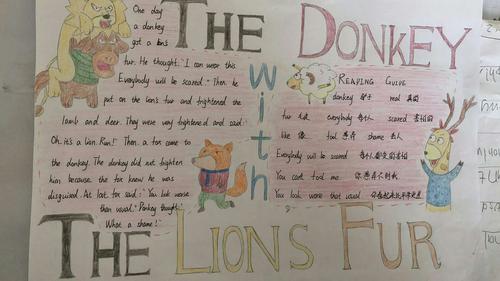 THE DONKEY
with
THE LIONS FUR
One day
a donkey
got a lions
fur. He thought: "I can wear this
Everybody will be scared." Then he
put on the lion's fur and frightened the
lamb and deer. They were very frightened and said:
Oh. it's a lion. Run! Then a fox came to
the donkey. The donkey did not frighten
him because the fox knew he was
disguised. At last fox said: "You look worse
than usual." Donkey thought:
What a shame!
READING GUIDE
donkey 驴子 real 真的
fur 毛皮 everybody 每个人 scared 害怕的
like 像 fool 愚弄 shame 丢人
Everybody will be scared 每个人都会害怕的
You can't fool me 你愚弄不到我
You look worse than usual